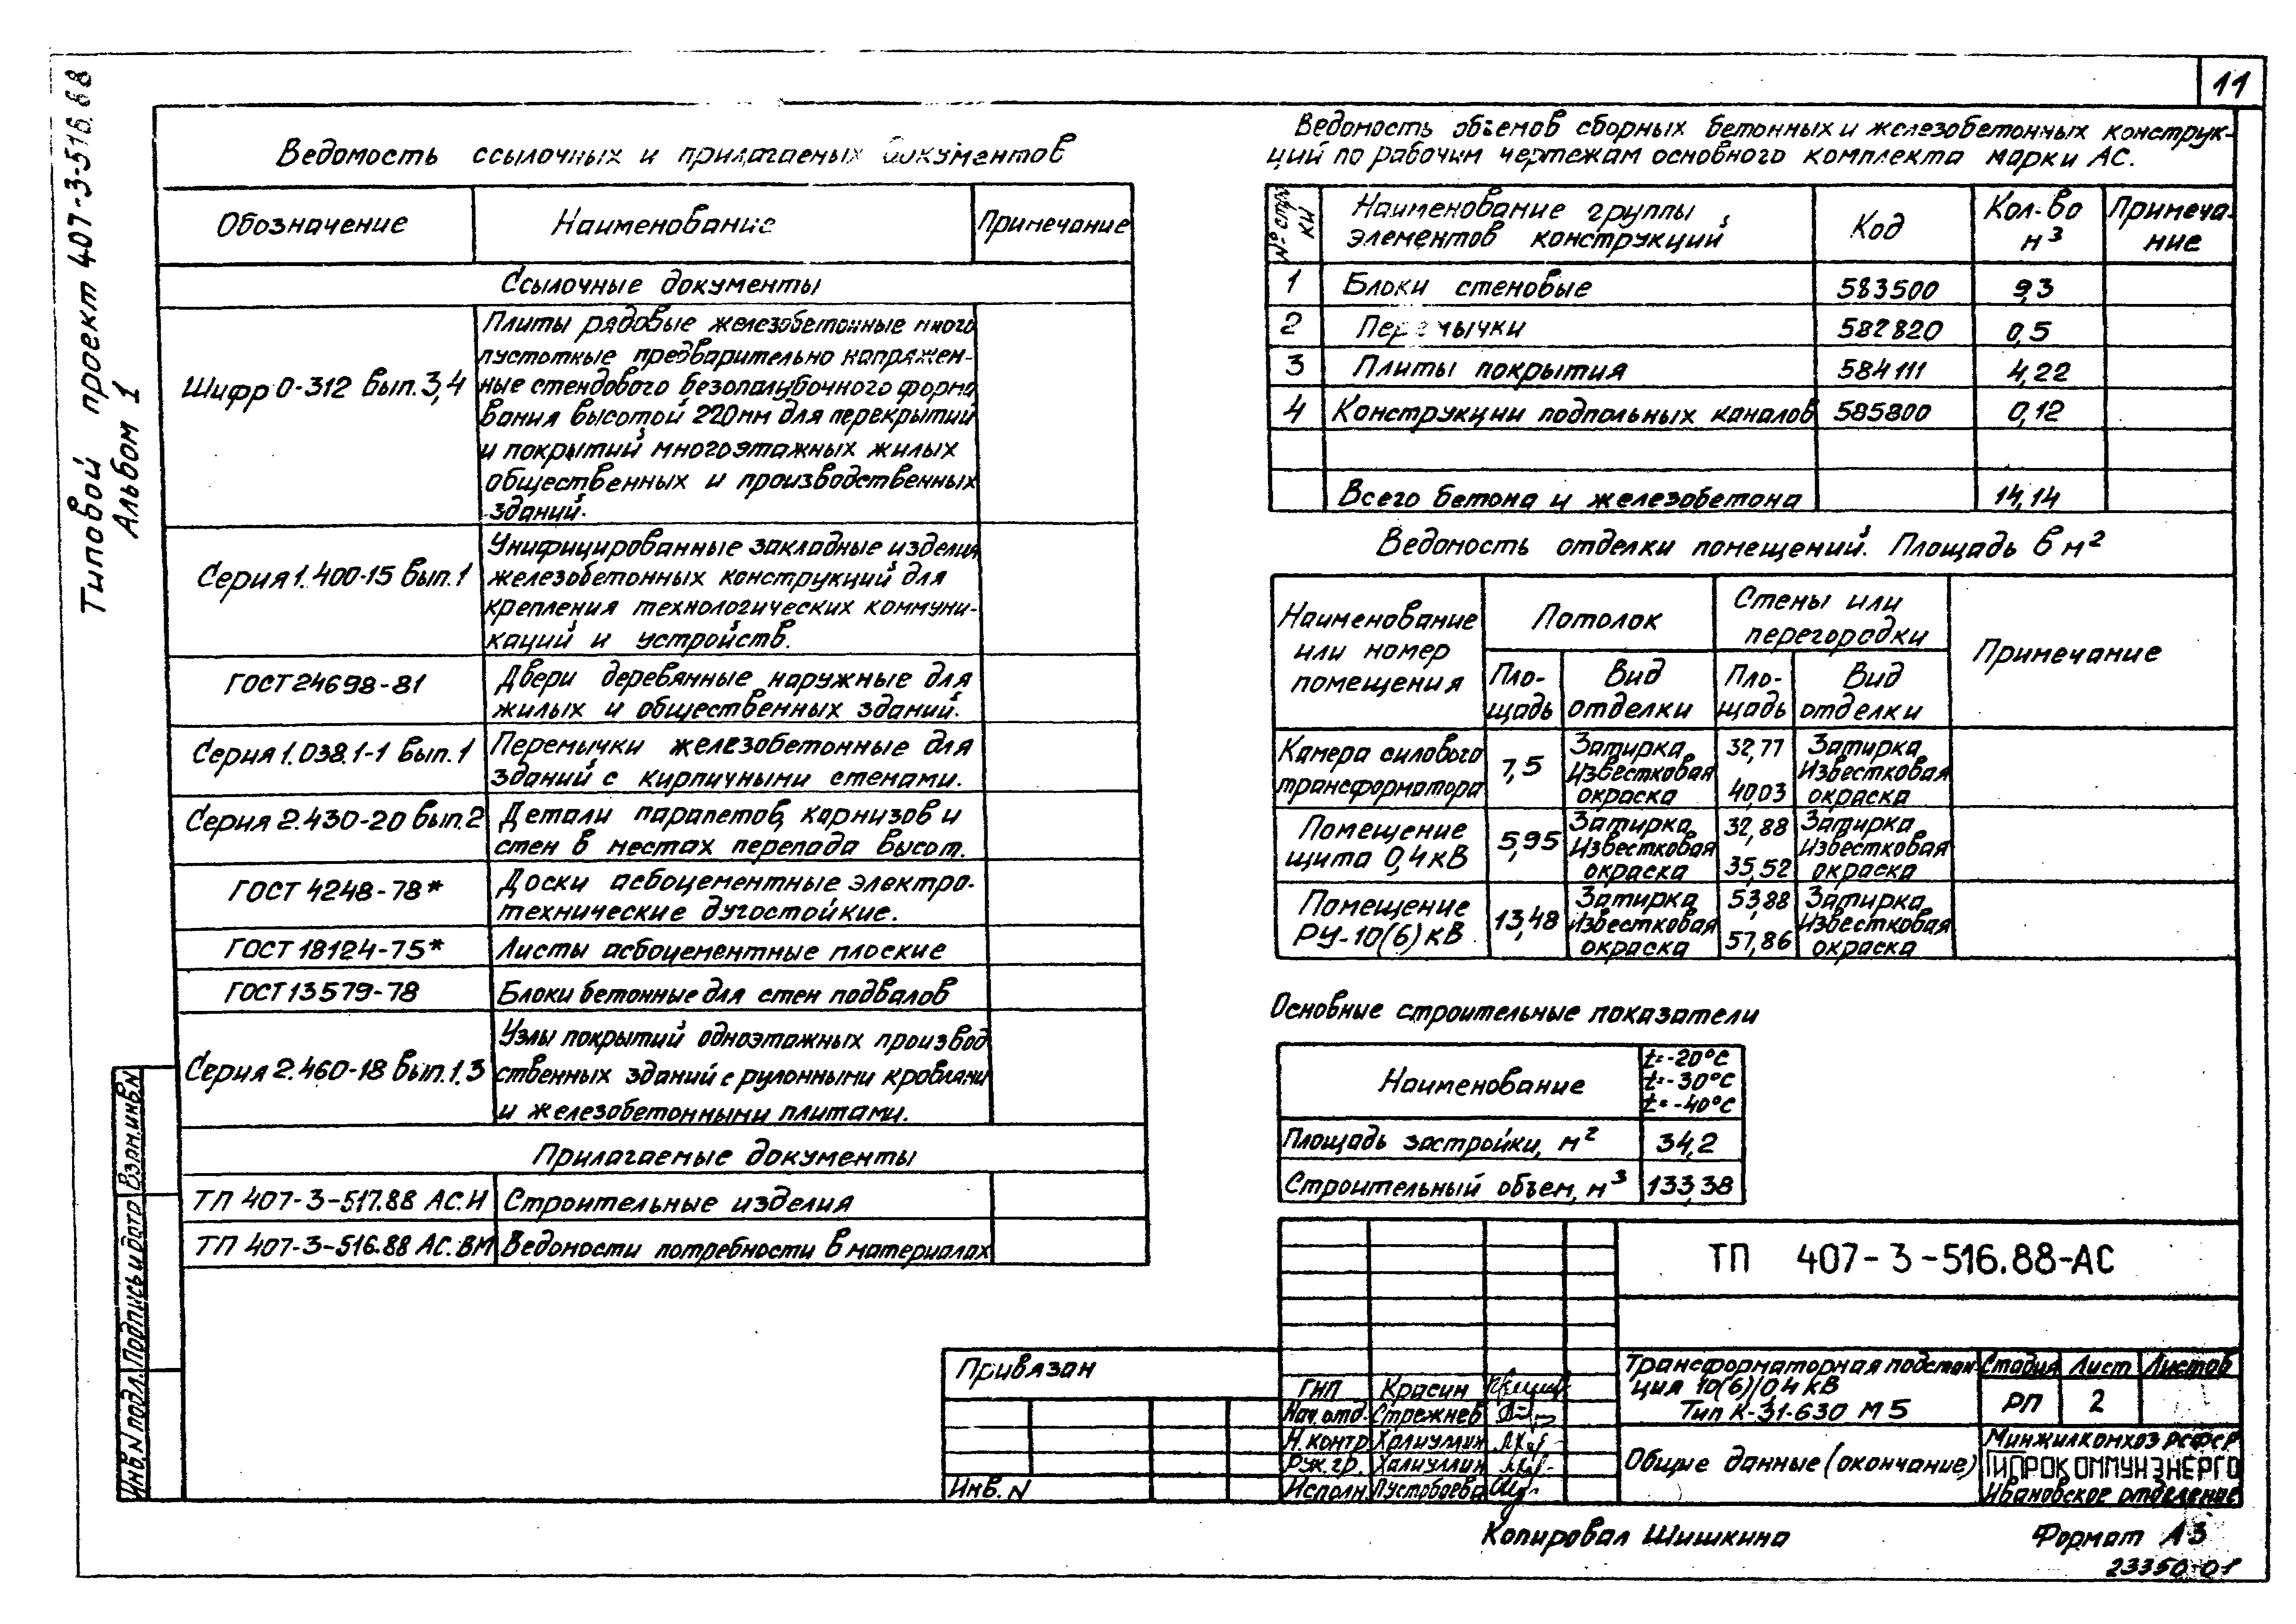 11
Типовой проект 407-3-516.88
Альбом 1
Ведомость ссылочных и прилагаемых документов
Обозначение
Наименование
Примечание
Ссылочные документы
Шифр 0-312 вып. 3,4
Плиты рядовые железобетонные много
пустотные предварительно напряжен-
ные стендового безопалубочного формо
вания высотой 220мм для перекрытий
и покрытий многоэтажных жилых
общественных и производственных
зданий.
Серия 1.400-15 вып. 1
Унифицированные закладные изделия
железобетонных конструкций для
крепления технологических коммуни-
каций и устройств.
ГОСТ 24698-81
Двери деревянные наружные для
жилых и общественных зданий.
Серия 1.038.1-1 вып. 1
Перемычки железобетонные для
зданий с кирпичными стенами.
Серия 2.430-20 вып. 2
Детали парапетов, карнизов и
стен в местах перепада высот.
ГОСТ 4248-78*
Доски асбоцементные электро-
технические дугостойкие.
ГОСТ 18124-75*
Листы асбоцементные плоские
ГОСТ 13579-78
Блоки бетонные для стен подвалов
Серия 2.460-18 вып. 1,3
Узлы покрытий одноэтажных производ
ственных зданий с рулонными кровлями
и железобетонными плитами.
Прилагаемые документы
ТП 407-3-517.88 АС.И
Строительные изделия
ТП 407-3-516.88 АС.ВМ
Ведомости потребности в материалах
Ведомость объемов сборных бетонных и железобетонных конструк-
ций по рабочим чертежам основного комплекта марки АС.
№ стро
ки
Наименование группы
элементов конструкций
Код
Кол-во
м³
Примеча-
ние
1 Блоки стеновые 583500 9,3
2 Перемычки 582820 0,5
3 Плиты покрытия 584111 4,22
4 Конструкции подпольных каналов 585800 0,12
Всего бетона и железобетона 14,14
Ведомость отделки помещений. Площадь в м²
Наименование
или номер
помещения
Потолок
Стены или
перегородки
Примечание
Пло-
щадь
Вид
отделки
Пло-
щадь
Вид
отделки
Камера силового
трансформатора
7,5
Затирка
Известковая
окраска
32,77
40,03
Затирка
Известковая
окраска
Помещение
щита 0,4 кВ
5,95
Затирка
Известковая
окраска
32,88
35,52
Затирка
Известковая
окраска
Помещение
РУ-10(6) кВ
13,48
Затирка
Известковая
окраска
53,88
57,86
Затирка
Известковая
окраска
Основные строительные показатели
Наименование
t=-20°С
t=-30°С
t=-40°С
Площадь застройки, м² 34,2
Строительный объем, м³ 133,38
ТП 407-3-516.88-АС
Привязан
Инв. N
ГИП Красин
Нач. отд. Стрежнев
Н. контр Халиуллин
Рук. гр. Халиуллин
Исполн. Пустобаева
Трансформаторная подстан
ция 10(6)/0,4 кВ
Тип К-31-630 М5
Стадия Лист Листов
РП 2
Общие данные (окончание)
Минжилкомхоз РСФСР
ГИПРОКОММУНЭНЕРГО
Ивановское отделение
Инв. N подл. Подпись и дата Взам. инв. N
Копировал Шишкина
Формат А3
23350-01